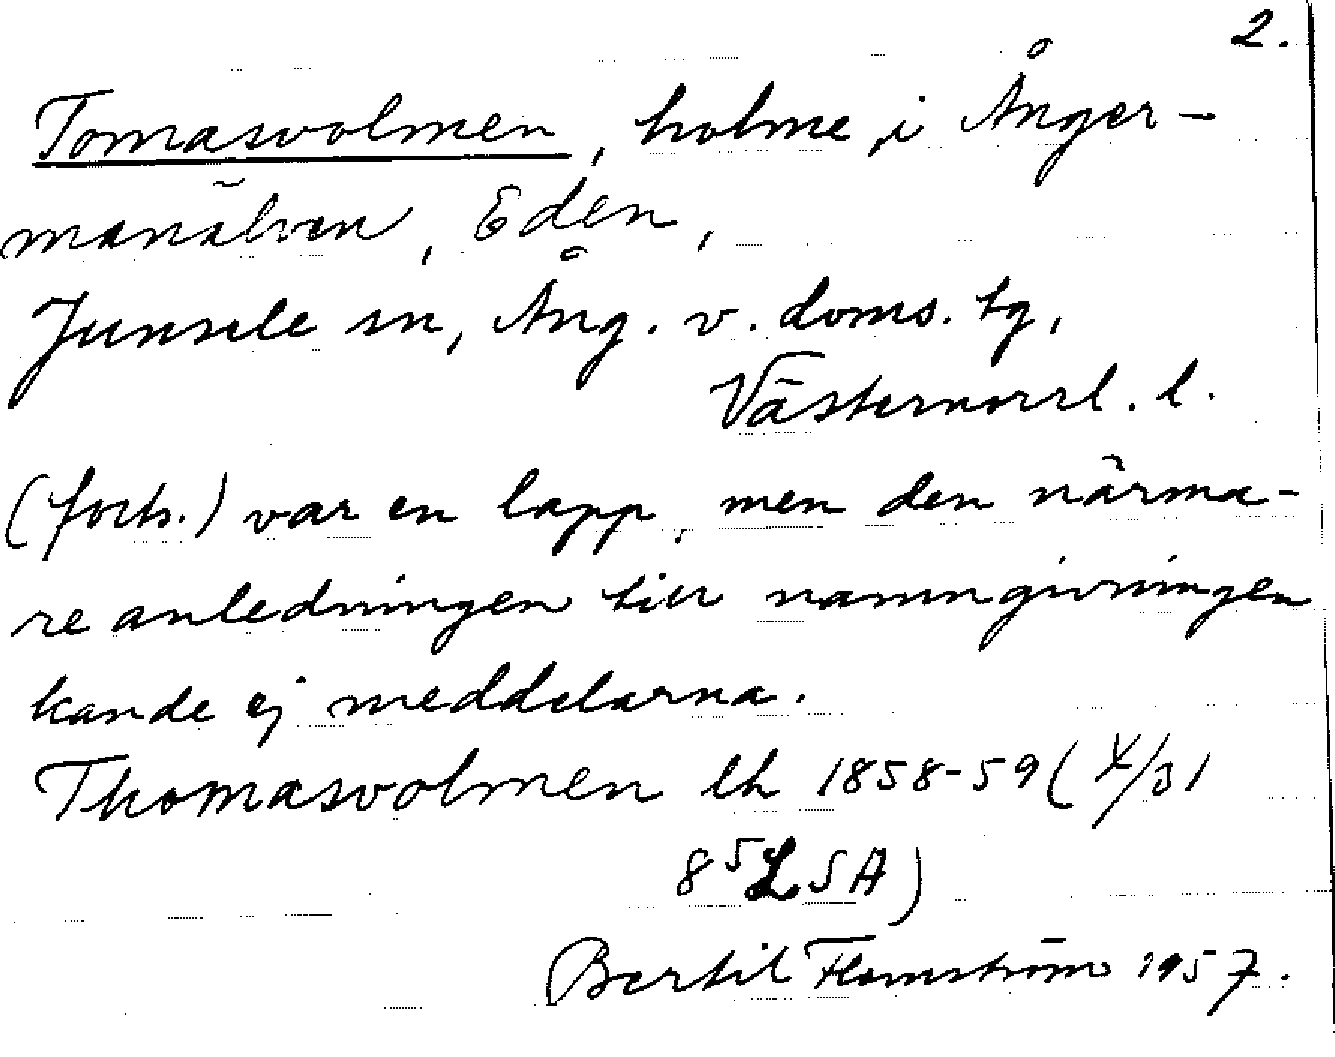 2.
Tomasvolmen, holme i Ånger-
manälven, Eden,
Junsele sn, Ång. v. doms. tg,
Västernorrl. l.
(forts.) var en lapp, men den närma-
re anledningen till namngivningen
kande ej meddelarna.
Thomasvolmen lh 1858-59 (X/31
8⁵ LSA)
Bertil Flemström 1957.